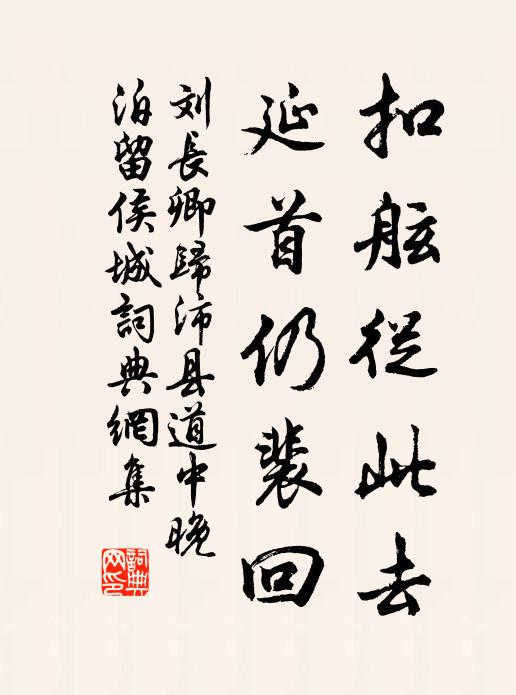 扣舷從此去
延首仍裴回
刘長卿歸沛县道中晚
泊留侯城詞典網集
詞典
网印